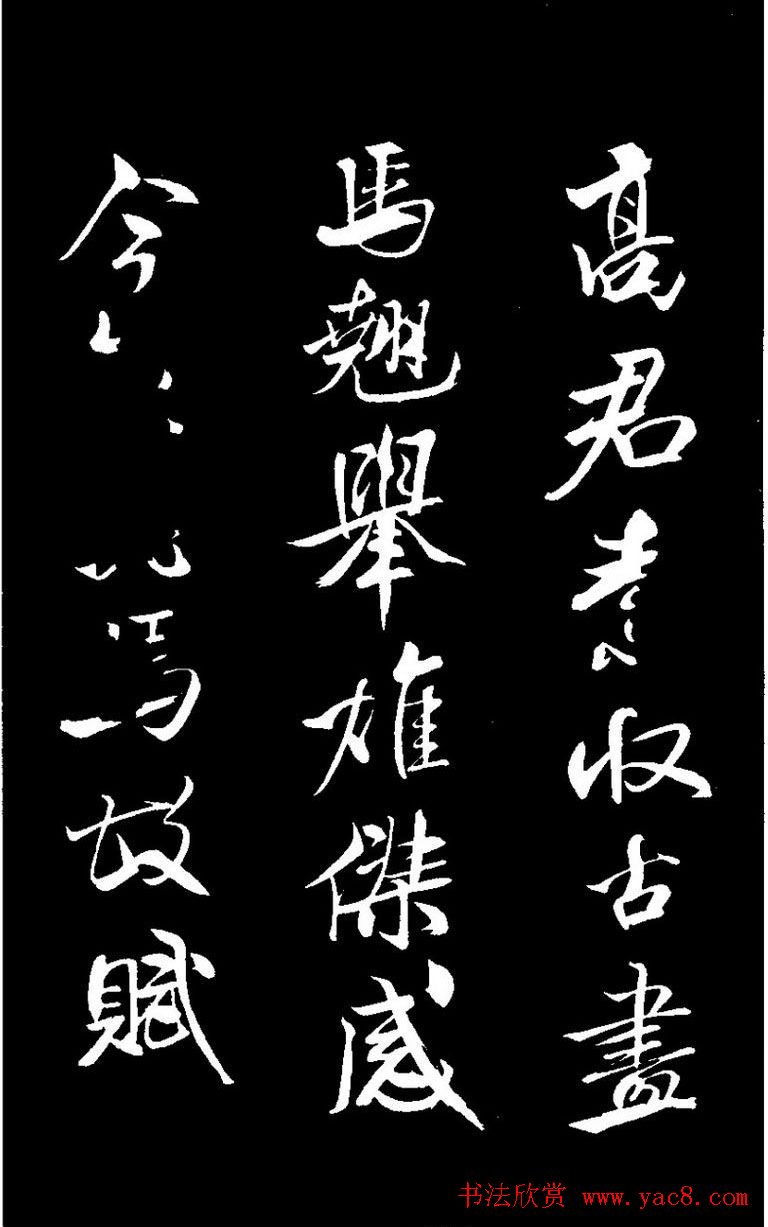 高君素收古畫
馬翹舉雄傑感
今此馬故賦
书法欣赏 www.yac8.com